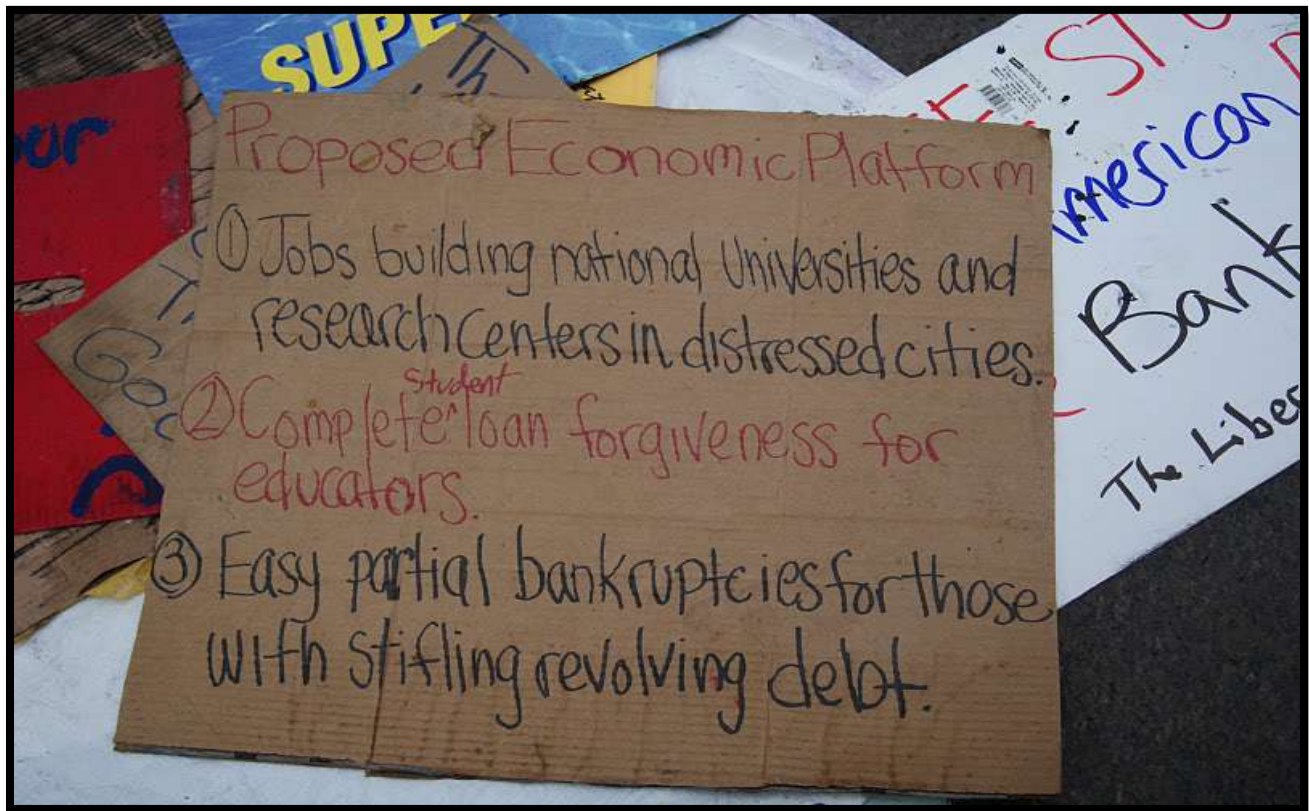 SUPE
Th
our
Proposed Economic Platform
① Jobs building national universities and
research centers in distressed cities.
② Complete ^student loan forgiveness for
educators.
③ Easy partial bankruptcies for those
with stifling revolving debt.
ST
American
Bank
The Liber